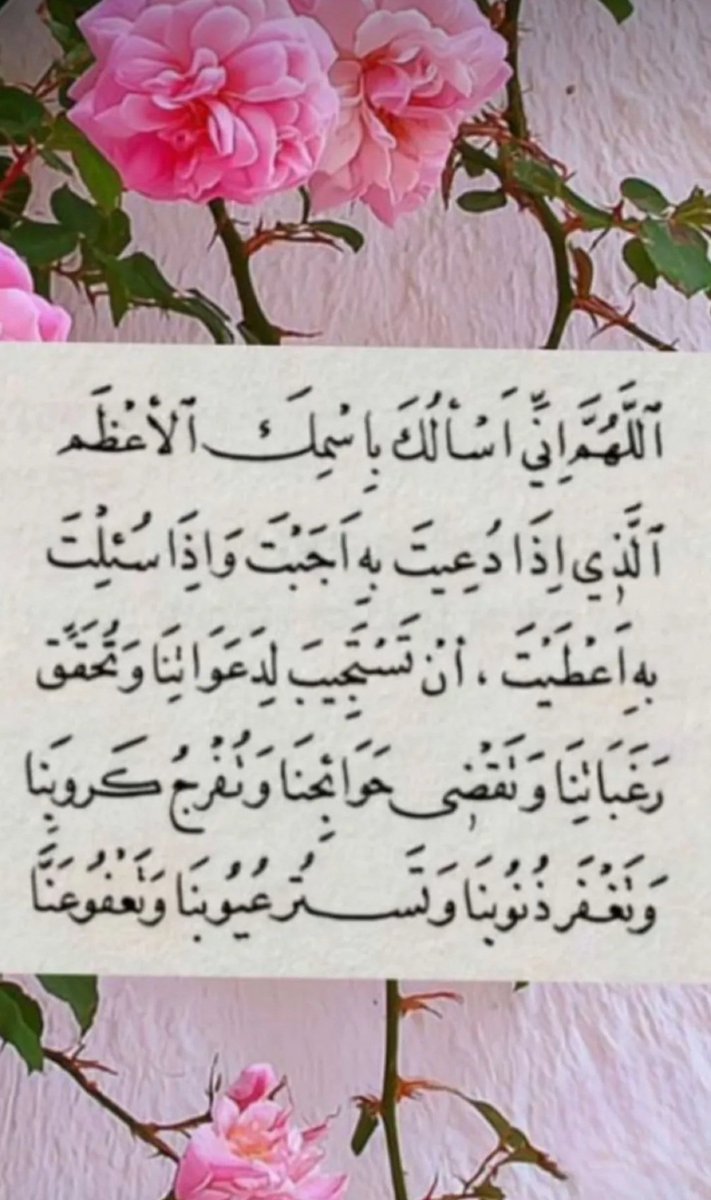 ٱللَّهُمَّ إِنِّي اَسْأَلُكَ بِاسْمِكَ ٱلأعْظَم
ٱلَّذِي اِذَا دُعِيتَ بِهِ اَجَبْتَ وَاِذَا سُئِلْتَ
بِهِ اَعْطَيْتَ ، أنْ تَسْتَجِيبَ لِدَعَوَاتِنَا وَتُحَقِّق
رَغَبَاتِنَا وَتَقْضِى حَوَائِجنَا وَتُفْرجُ كَروبِنا
وَتَغْفَر ذُنُوبنَا وَتَسـتُر عُيُوبنَا وَتَعْفُو عَنَّا